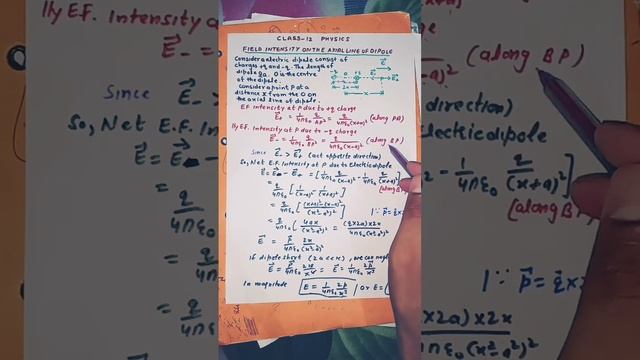 CLASS-12 PHYSICS
FIELD INTENSITY ON THE AXIAL LINE OF DIPOLE
Consider a electric dipole consist of
charges +q and -q. The length of
dipole 2a. O is the centre
of the dipole.
consider a point P at a
distance x from the O on
the axial line of dipole.
EF intensity at P due to +q charge
E₊ = 1/4πε₀ q/AP² = q/4πε₀(x+a)² (along PA)
lly E.F. intensity at P due to -q charge
E₋ = 1/4πε₀ q/BP² = q/4πε₀(x-a)² (along BP)
Since E₋ > E₊ (act opposite direction)
So, Net E.F. Intensity at P due to Electric dipole
E = E₋ - E₊ = [1/4πε₀ q/(x-a)² - 1/4πε₀ q/(x+a)²]
(along BP)
= q/4πε₀ [1/(x-a)² - 1/(x+a)²]
= q/4πε₀ [(x+a)²-(x-a)²/(x²-a²)²]
= q/4πε₀ [4ax/(x²-a²)²] = (qx2a)x2x/4πε₀(x²-a²)²
E = p/4πε₀ 2x/(x²-a²)²
if dipole short (2a<<x), we can
E = p/4πε₀ 2x/x⁴ = E = 1/4πε₀ 2p/x³
In magnitude E = 1/4πε₀ 2p/x³ / or E =
lly E.F. intensity
(along BP)
Since
direction)
So, Net E.F. Inten
Electric dipole